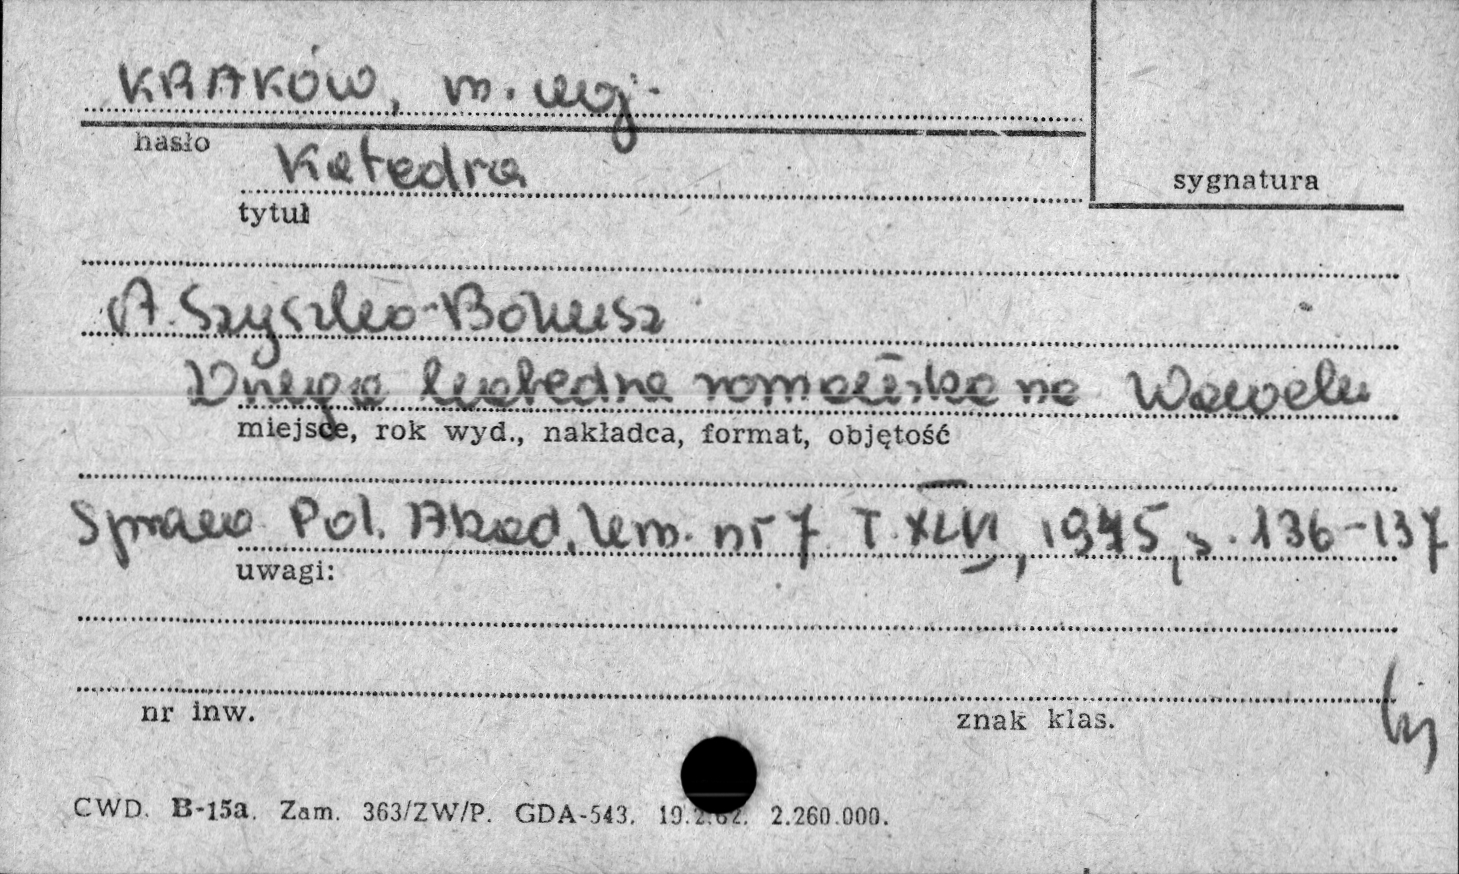 KRAKÓW, m. woj.
hasło
Katedra
sygnatura
tytuł
A. Szyszko-Bohusz
Druga katedra romańska na Wawelu
miejsce, rok wyd., nakładca, format, objętość
Spraw. Pol. Akad. Um. nr 7 T. XLVI, 1945, s. 136-137
uwagi:
nr inw.
znak klas.
CWD. B-15a. Zam. 363/ZW/P. GDA-543. 19.2.62. 2.260.000.